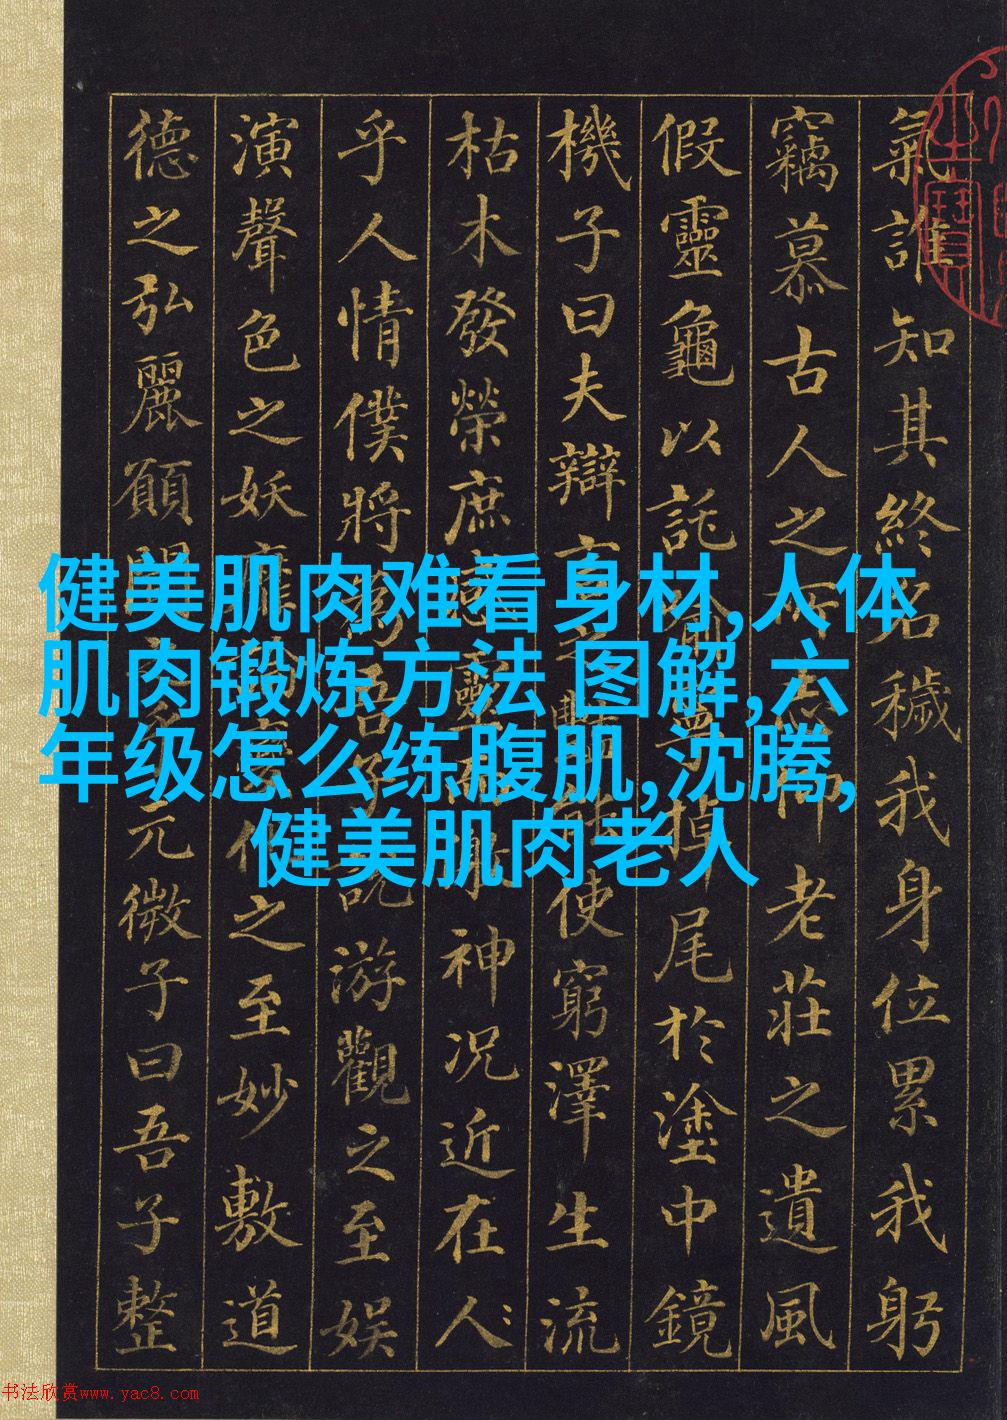 氣誰知其終名穢我身位累我躬
竊慕古人之所仰老莊之遺風
假靈龜以託掉尾於塗中鏡
機子曰夫辯言之豔能使窮澤生流
枯木發榮庶感靈激神況近在人
乎人情僕將吾子說游觀之至娛
演聲色之妖靡化之至妙敷道
德之弘麗願聞之乎元微子曰吾子整
健美肌肉难看身材,人体
肌肉锻炼方法 图解,六
年级怎么练腹肌,沈腾,
健美肌肉老人
书法欣赏www.yac8.com